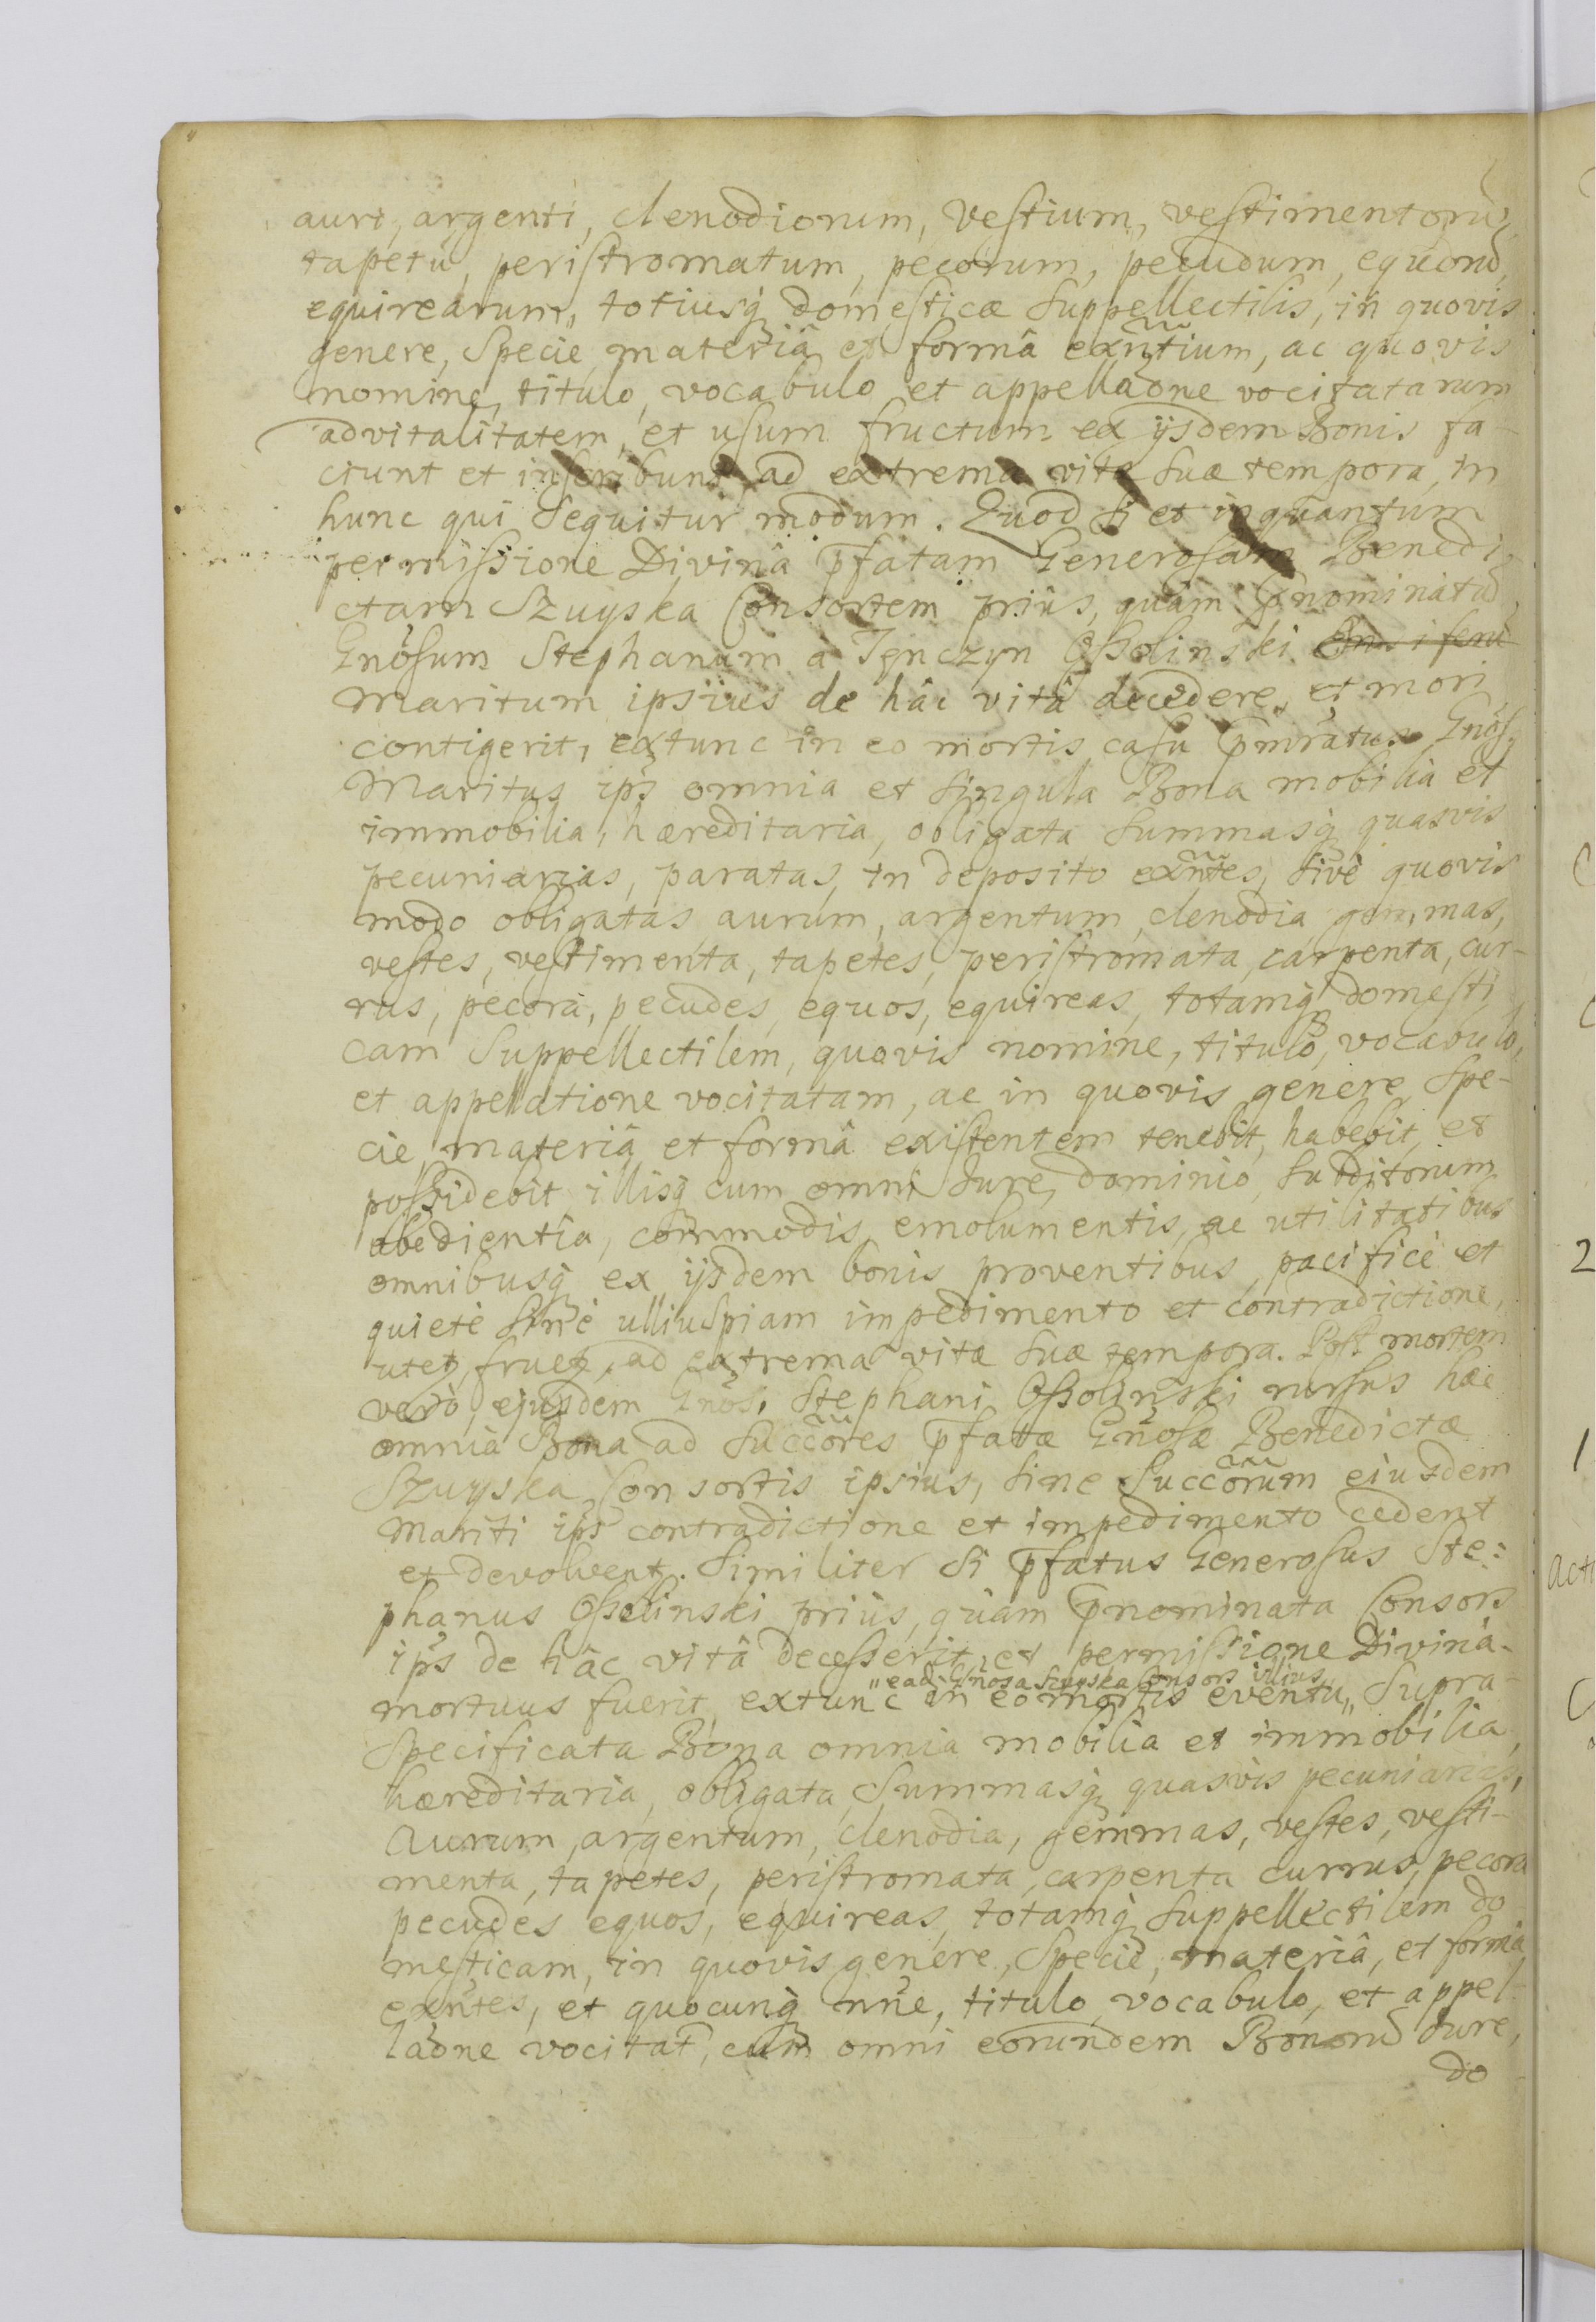 auri, argenti, clenodiorum, Vestium, vestimentorũ,
tapetũ, peristromatum, pecorum, pecudum, equorũ,
equirearum, totiusq; domesticæ Suppellectilis, in quovis
genere, Specie, materiâ et formâ exñtium, ac quovis
nomine, titulo, vocabulo et appellaõne vocitatarum
advitalitatem, et usum fructum ex ijsdem Bonis fa-
ciunt et inscribunt ad extrema vitæ suæ tempora, in
hunc qui sequitur modum. Quod si et inquantum
permissione Divinâ p̃fatam Generosam Benedi
ctam Szuyska Consortem prius, quàm p̃nominatũ
Gnõsum Stephanum à Tęnczyn Ossolinski
Maritum ipsius de hâc vitâ decedere, et mori
contigerit, extunc in eo mortis casu p̃mratus Gnõs.
Maritus ips̃ omnia et Singula Bona mobilia et
immobilia, hæreditaria, obligata Summasq; quasvis
pecuniarias, paratas, in deposito exñtes, sivè quovis
modo obligatas, aurum, argentum, clenodia, gemmas,
vestes, vestimenta, tapetes, peristromata, carpenta, cur-
rus, pecora, pecudes, equos, equireas, totamq; domesti
cam Suppellectilem, quovis nomine, titulo, vocabulo,
et appellatione vocitatam, ac in quovis genere, Spe-
cie, materiâ et formâ existentem tenebit, habebit, et
possidebit illisq; cum omni Jure, dominio, Subditorum
obedientia, commodis, emolumentis, ac utilitatibus
omnibusq; ex ijsdem bonis proventibus, pacificè et
quietè Sinè ulliuspiam impedimento et contradictione,
utet̃, fruet̃, ad extrema vitæ suæ tempora. Post mortem
verò, ejusdem Gnõs. Stephani Ossolinski rursus hæc
omnia Bona ad Succõres p̃fatæ Gñosæ Benedictæ
Szuyska Consortis ipsius, sine Succõrum eiusdem
Mariti ips̃ contradictione et impedimento cedent
et devolvent̃. Similiter si p̃fatus Generosus Ste:
phanus Ossolinski priùs, quàm p̃nominata Consors
ips̃ de hâc vitâ decesserit, et permissione Divinâ
"ead. Gñosa Szuyska Consors illius
mortuus fuerit, extunc in eo mortis eventu" Supra-
Specificata Bona omnia mobilia et immobilia,
hæreditaria, obligata, Summasq; quasvis pecuniarias,
Aurum, argentum, clenodia, gemmas, vestes, vesti-
menta, tapetes, peristromata, carpenta currus, pecora
pecudes equos, equireas, totamq; Suppellectilem do
mesticam, in quovis genere, Specie, materiâ, et formâ
exñtes, et quocunq; nñe, titulo, vocabulo, et appel-
laõne vocitat̃, cum omni eorundem Bonorũ Jure,
do